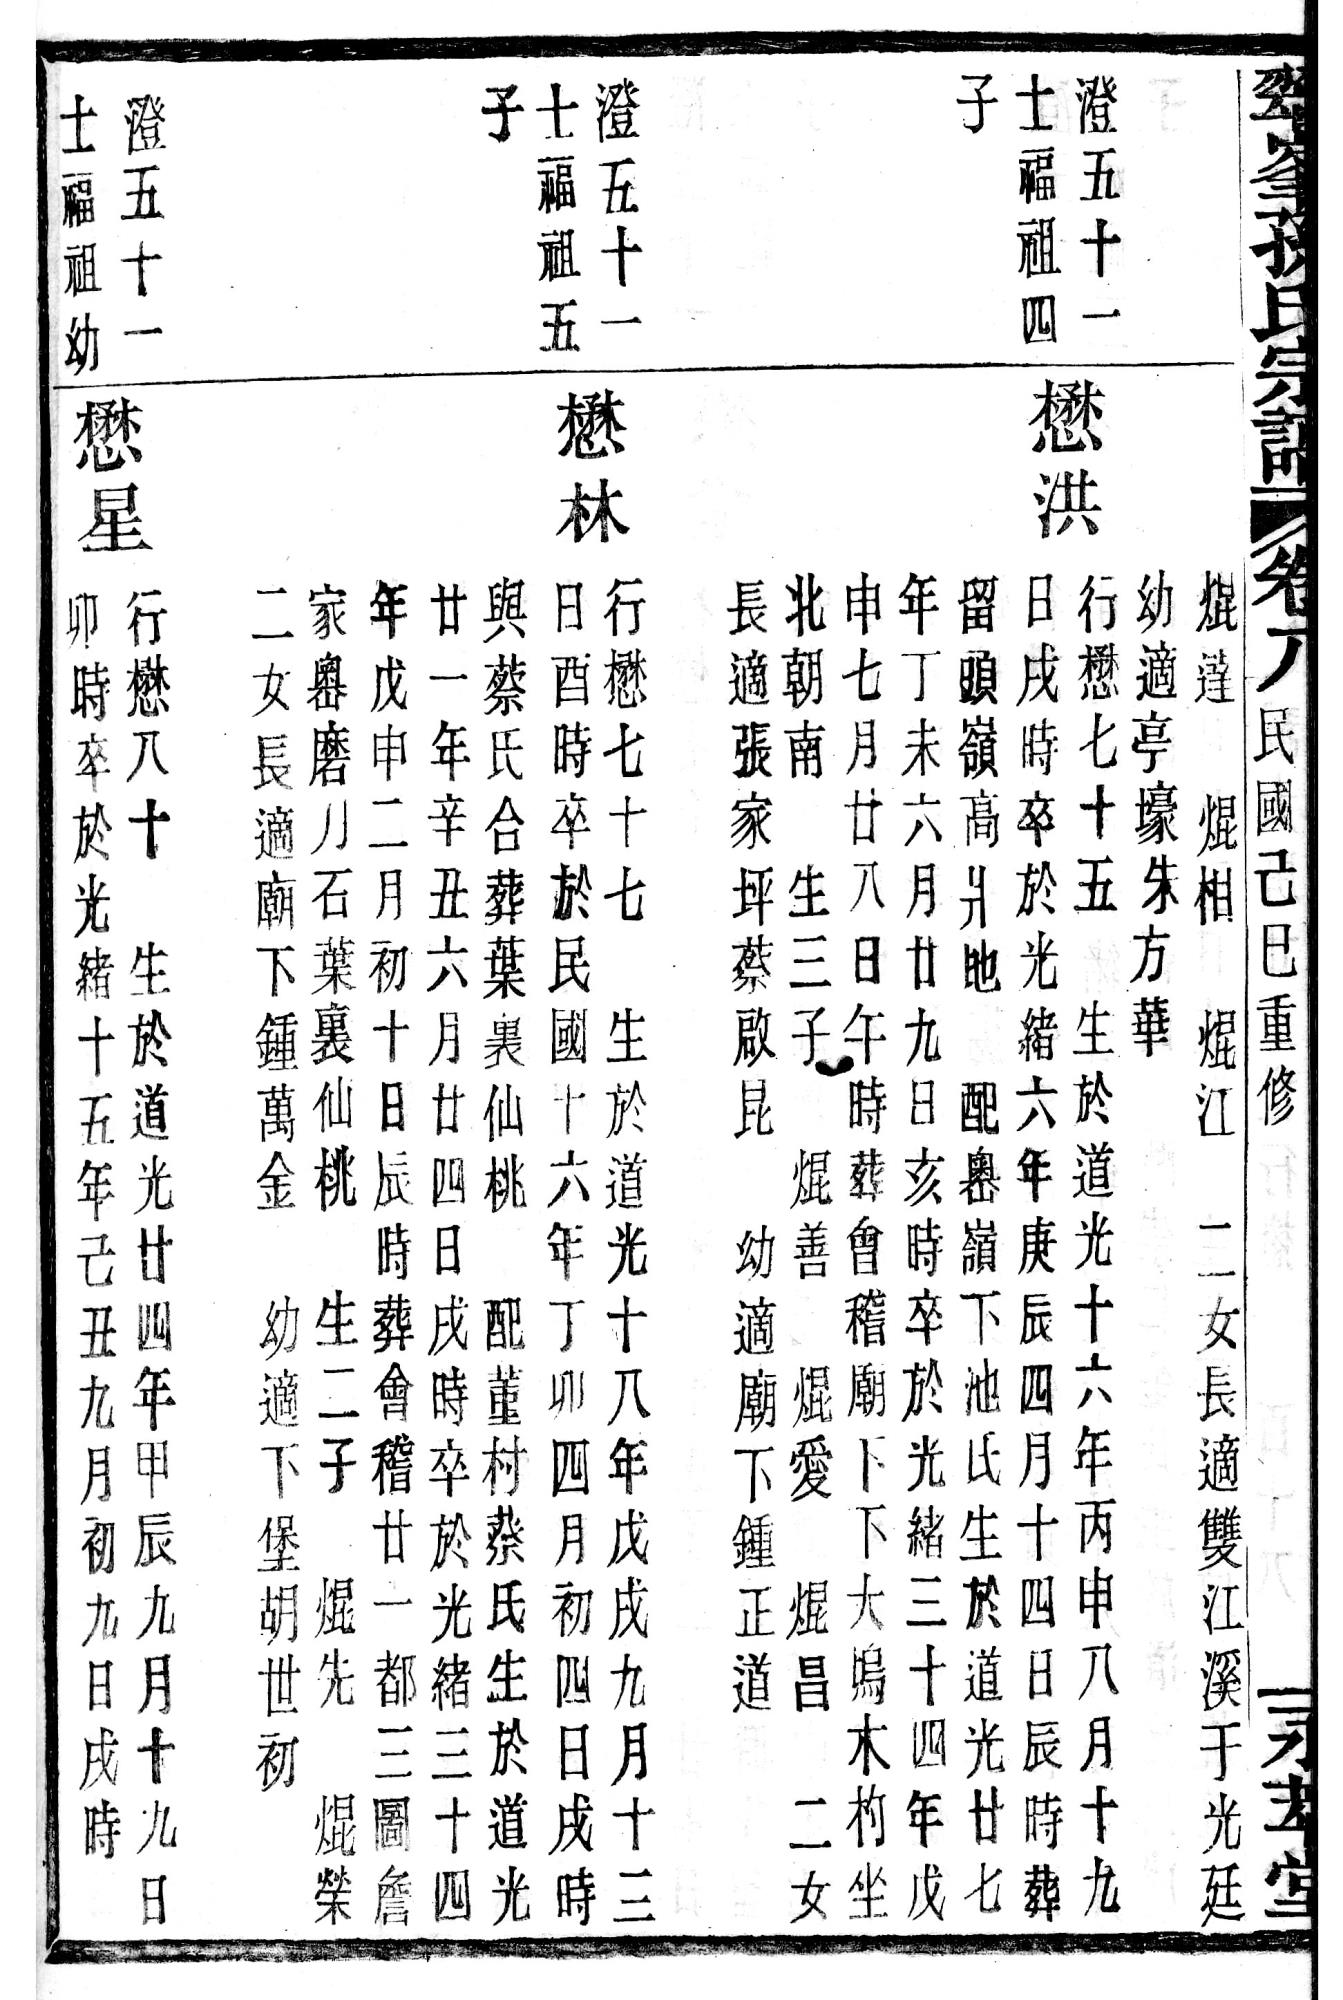 孫氏宗譜 卷八 民國己巳重修
焜蓬 焜相 焜江 二女長適雙江溪于光廷
幼適亭壕朱方華
澄五十一
士福祖四
子
懋洪
行懋七十五 生於道光十六年丙申八月十九
日戌時卒於光緒六年庚辰四月十四日辰時葬
留頭嶺高爿地 配嶴嶺下池氏生於道光廿七
年丁未六月廿九日亥時卒於光緒三十四年戊
申七月廿八日午時葬會稽廟下下大塢木杓坐
北朝南 生三子 焜善 焜愛 焜昌 二女
長適張家坪蔡啟昆 幼適廟下鍾正道
澄五十一
士福祖五
子
懋林
行懋七十七 生於道光十八年戊戌九月十三
日酉時卒於民國十六年丁卯四月初四日戌時
與蔡氏合葬葉裏仙桃 配董村蔡氏生於道光
廿一年辛丑六月廿四日戌時卒於光緒三十四
年戊申二月初十日辰時葬會稽廿一都三圖詹
家嶴磨刀石葉裏仙桃 生二子 焜先 焜榮
二女長適廟下鍾萬金 幼適下堡胡世初
澄五十一
士福祖幼
懋星
行懋八十 生於道光廿四年甲辰九月十九日
卯時卒於光緒十五年己丑九月初九日戌時